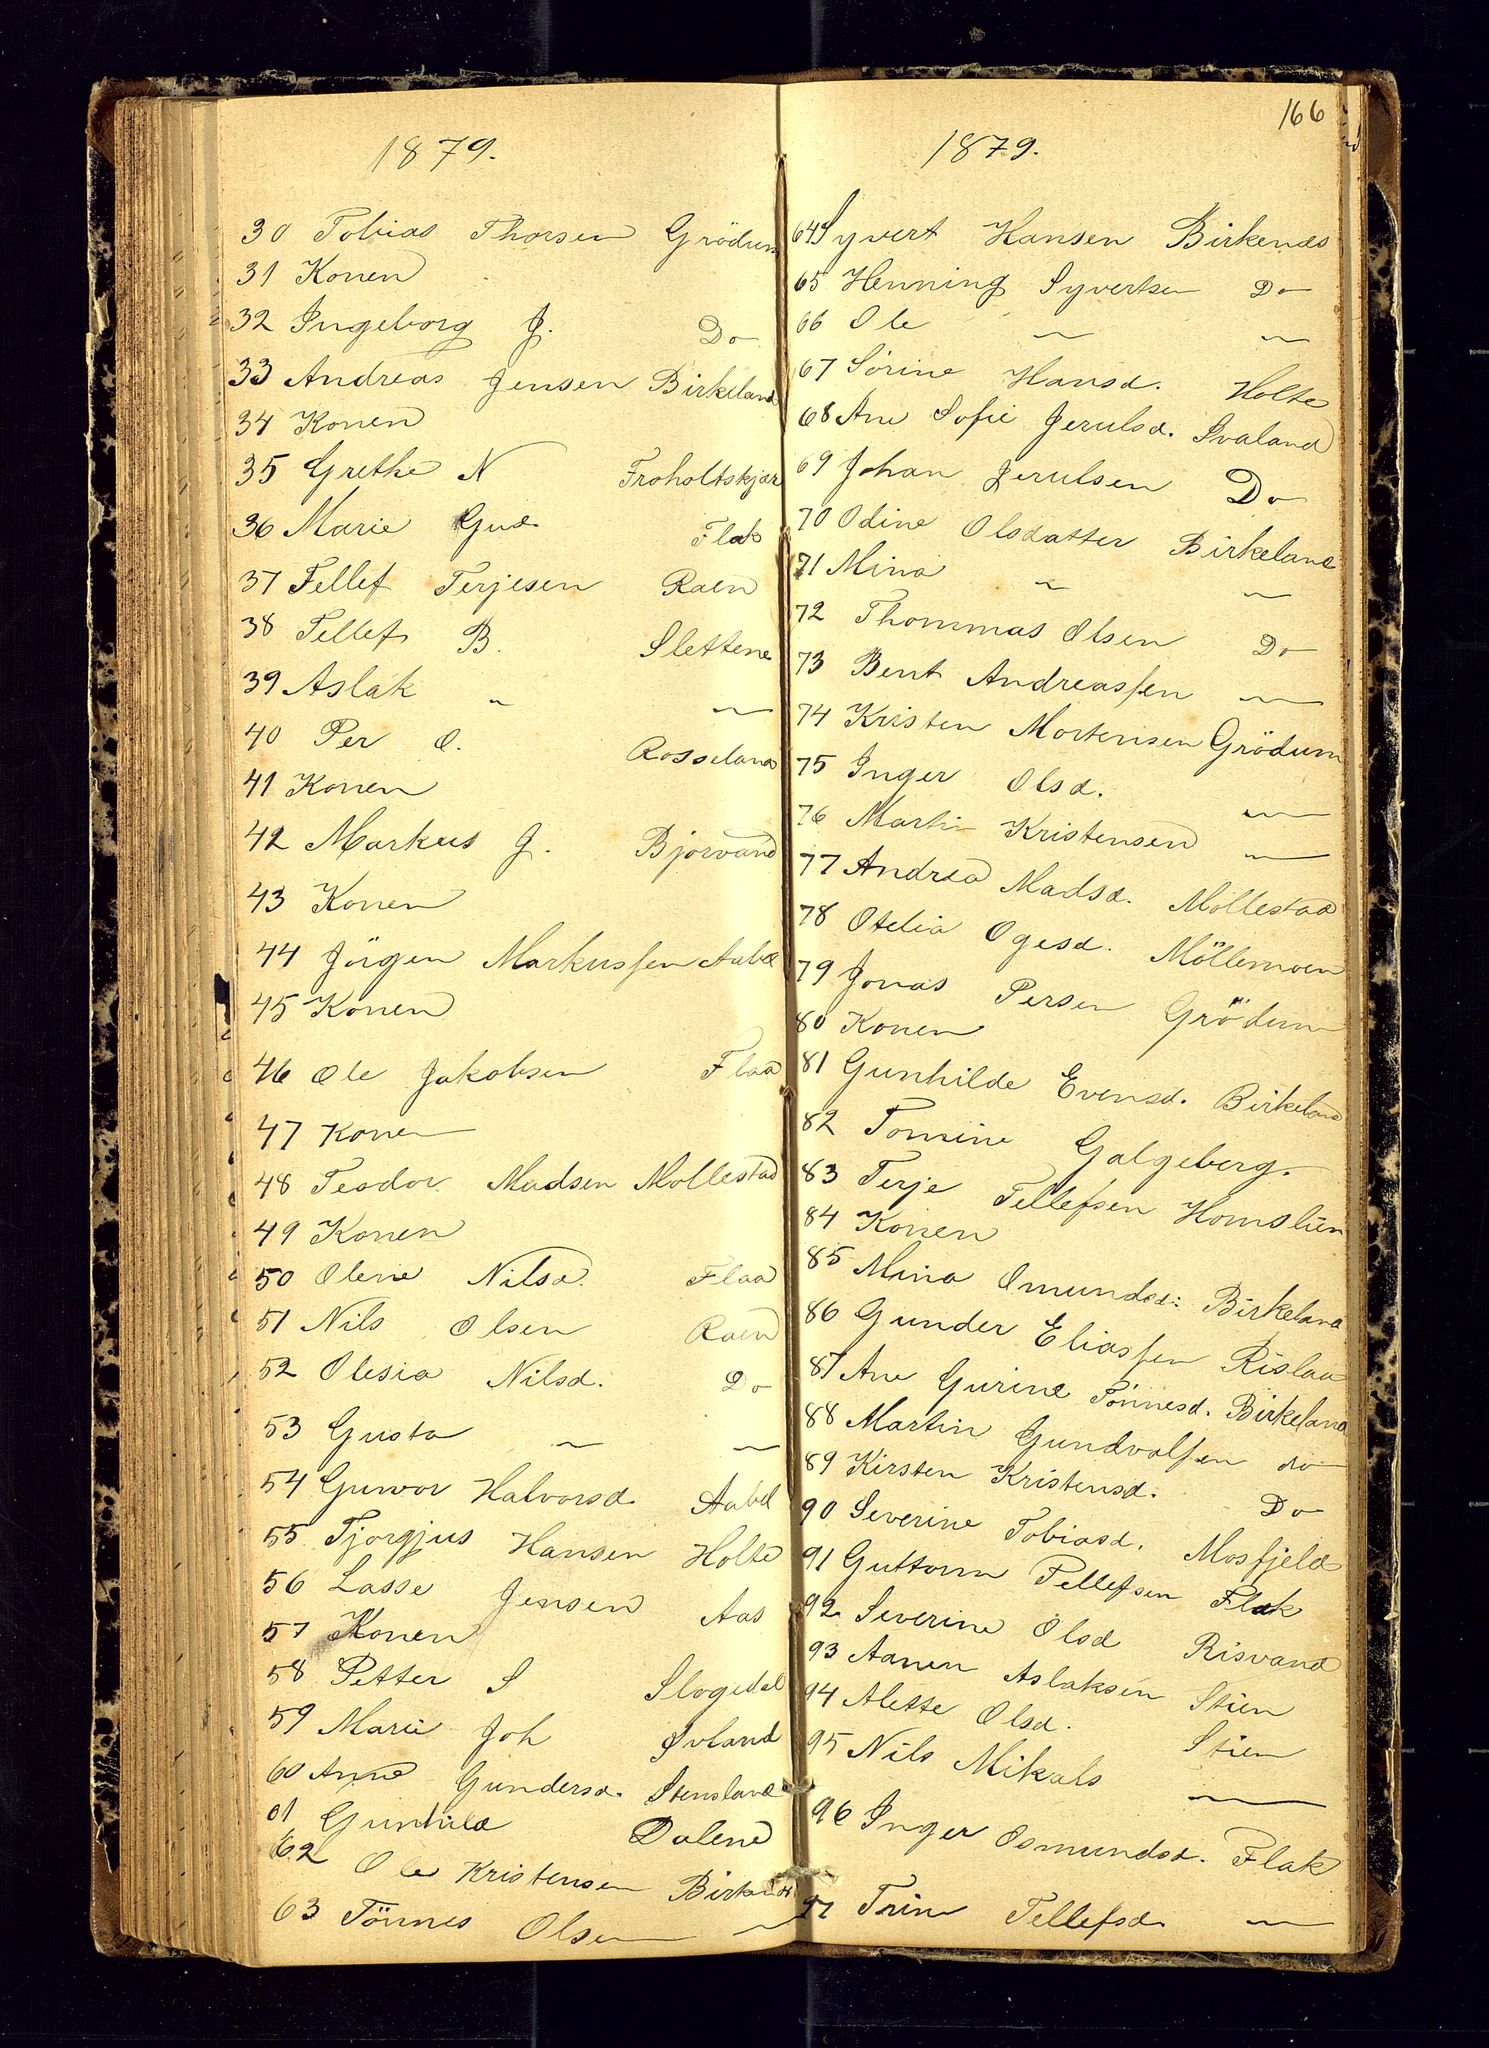 1879.
30 Tobias Thorsen Grödum
31 Konen
32 Ingeborg J. Do
33 Andreas Jensen Birkeland
34 Konen
35 Grethe N Froholtskjær
36 Marie Gud. Flak
37 Tellef Terjesen Raen
38 Tellef B. Slettene
39 Aslak " "
40 Per O. Rosseland
41 Konen
42 Markus J. Bjorvand
43 Konen
44 Jörgen Markussen Aabel
45 Konen
46 Ole Jakobsen Flaa
47 Konen
48 Teodor Madsen Mollestad
49 Konen
50 Olene Nilsd. Flaa
51 Nils Olsen Raen
52 Olesia Nilsd. Do
53 Gusta " "
54 Guvor Halvorsd. Aabel
55 Tjorgjus Hansen Holte
56 Lasse Jensen Aas
57 Konen
58 Petter S Slogedal
59 Marie Joh Øvland
60 Anne Gundersd. Stensland
61 Gunhild Dalene
62 Ole Kristensen Birkenes
63 Tönnes Olsen "
166
1879.
64 Syvert Hansen Birkenæs
65 Henning Syvertsen Do
66 Ole " "
67 Sörine Hansd. Holte
68 Ane Sofie Jerulsd. Svaland
69 Johan Jerulsen Do
70 Odine Olsdatter Birkeland
71 Mina " "
72 Thommas Olsen Do
73 Bent Andreassen "
74 Kristen Mortensen Grödum
75 Inger Olsd. "
76 Martin Kristensen "
77 Andrea Madsd. Mollestad
78 Otelia Ogesd. Möllemoen
79 Jonas Persen Grödum
80 Konen
81 Gunhilde Evensd. Birkeland
82 Tomine Galgeberg.
83 Terje Tellefsen Homslien
84 Konen
85 Mina Omundsd: Birkeland
86 Gunder Eliassen Rislaa
87 Ane Gurine Tönnesd. Birkeland
88 Martin Gundvalsen do
89 Kirsten Kristensd. Do
90 Severine Tobiasd. Mosfjeld
91 Guttorm Tellefsen Flak
92 Severine Olsd Risvand
93 Aanen Aslaksen Stien
94 Alette Olsd. Stien
95 Nils Mikals "
96 Inger Osmundsd. Flak
97 Trine Tellefsd. "